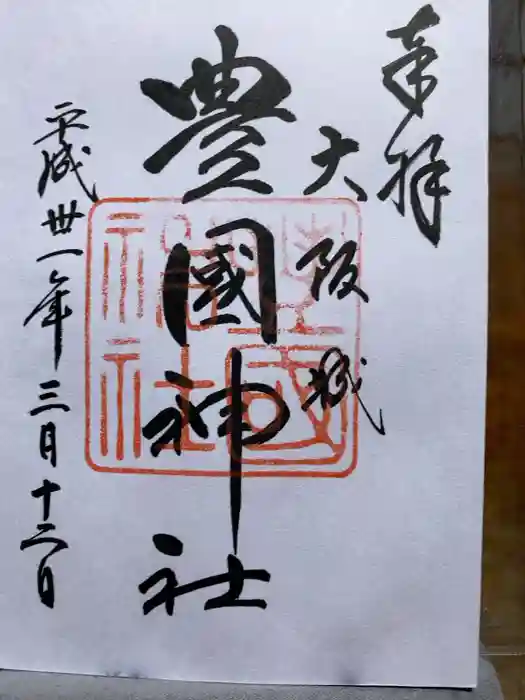 奉拝
大阪城
豊國神社
平成卅一年三月十六日
豊國神社